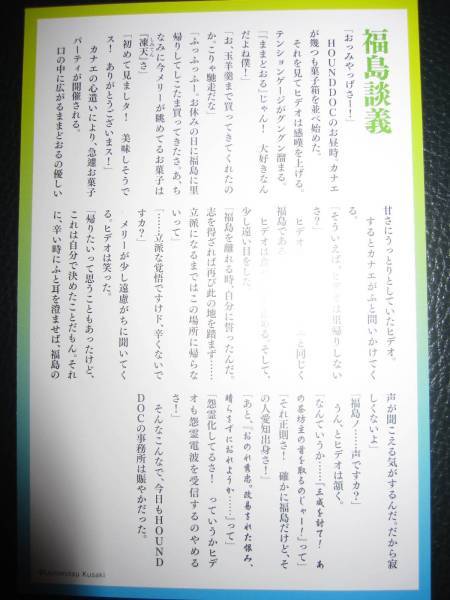 福島談義
「おっみやっげさー！」
HOUNDDOCのお昼時。カナエ
が幾つも菓子箱を並べ始めた。
それを見てヒデオは感嘆を上げる。
テンションゲージがグングン溜まる。
「ままどおる」じゃん！　大好きたん
だよね僕！」
「お、玉羊羹まで買ってきてくれたの
か。こりゃ馳走だな」
「ふっふっふー。お休みの日に福島に里
帰りしてしこたま買ってきたさ。あ、ち
なみに今メリーが眺めてるお菓子は
『凍天』さ」
「初めて見ましタ！　美味しそうで
ス！　ありがとうございまス！」
カナエの心遣いにより、急遽お菓子
パーティが開催される。
口の中に広がるままどおるの優しい
甘さにうっとりとしていたヒデオ。
するとカナエがふと問いかけてく
る。
「そういえば、
里帰りしない
さ？」
ヒデオ
と同じく
福島であ
ヒデオは
そして、
少し遠い目をした
「福島を離れる時、自分に誓ったんだ。
志を得ざれば再び此の地を踏まず……
立派になるまではこの場所に帰らな
いって」
「……立派な覚悟ですけド、辛くないで
すカ？」
メリーが少し遠慮がちに聞いてく
る。ヒデオは笑った。
「帰りたいって思うこともあったけど、
これは自分で決めたことだもん。それ
に、辛い時にふと耳を澄ませば、福島の
声が聞こえる気がするんだ。だから寂
しくないよ」
「福島ノ……声ですカ？」
うん、とヒデオは頷く。
「なんていうか……『三成を討て！　あ
の茶坊主の首を取るのじゃー！』って」
「それ正則さ！　確かに福島だけど、そ
の人愛知出身さ！」
「あと、『おのれ秀忠。改易された恨み、
晴らさずにおれようか……』って」
「怨霊化してるさ！　っていうかヒデ
オも怨霊電波を受信するのやめる
さ！」
そんなこんなで、今日もHOUND
DOCの事務所は賑やかだった。
Kusaki